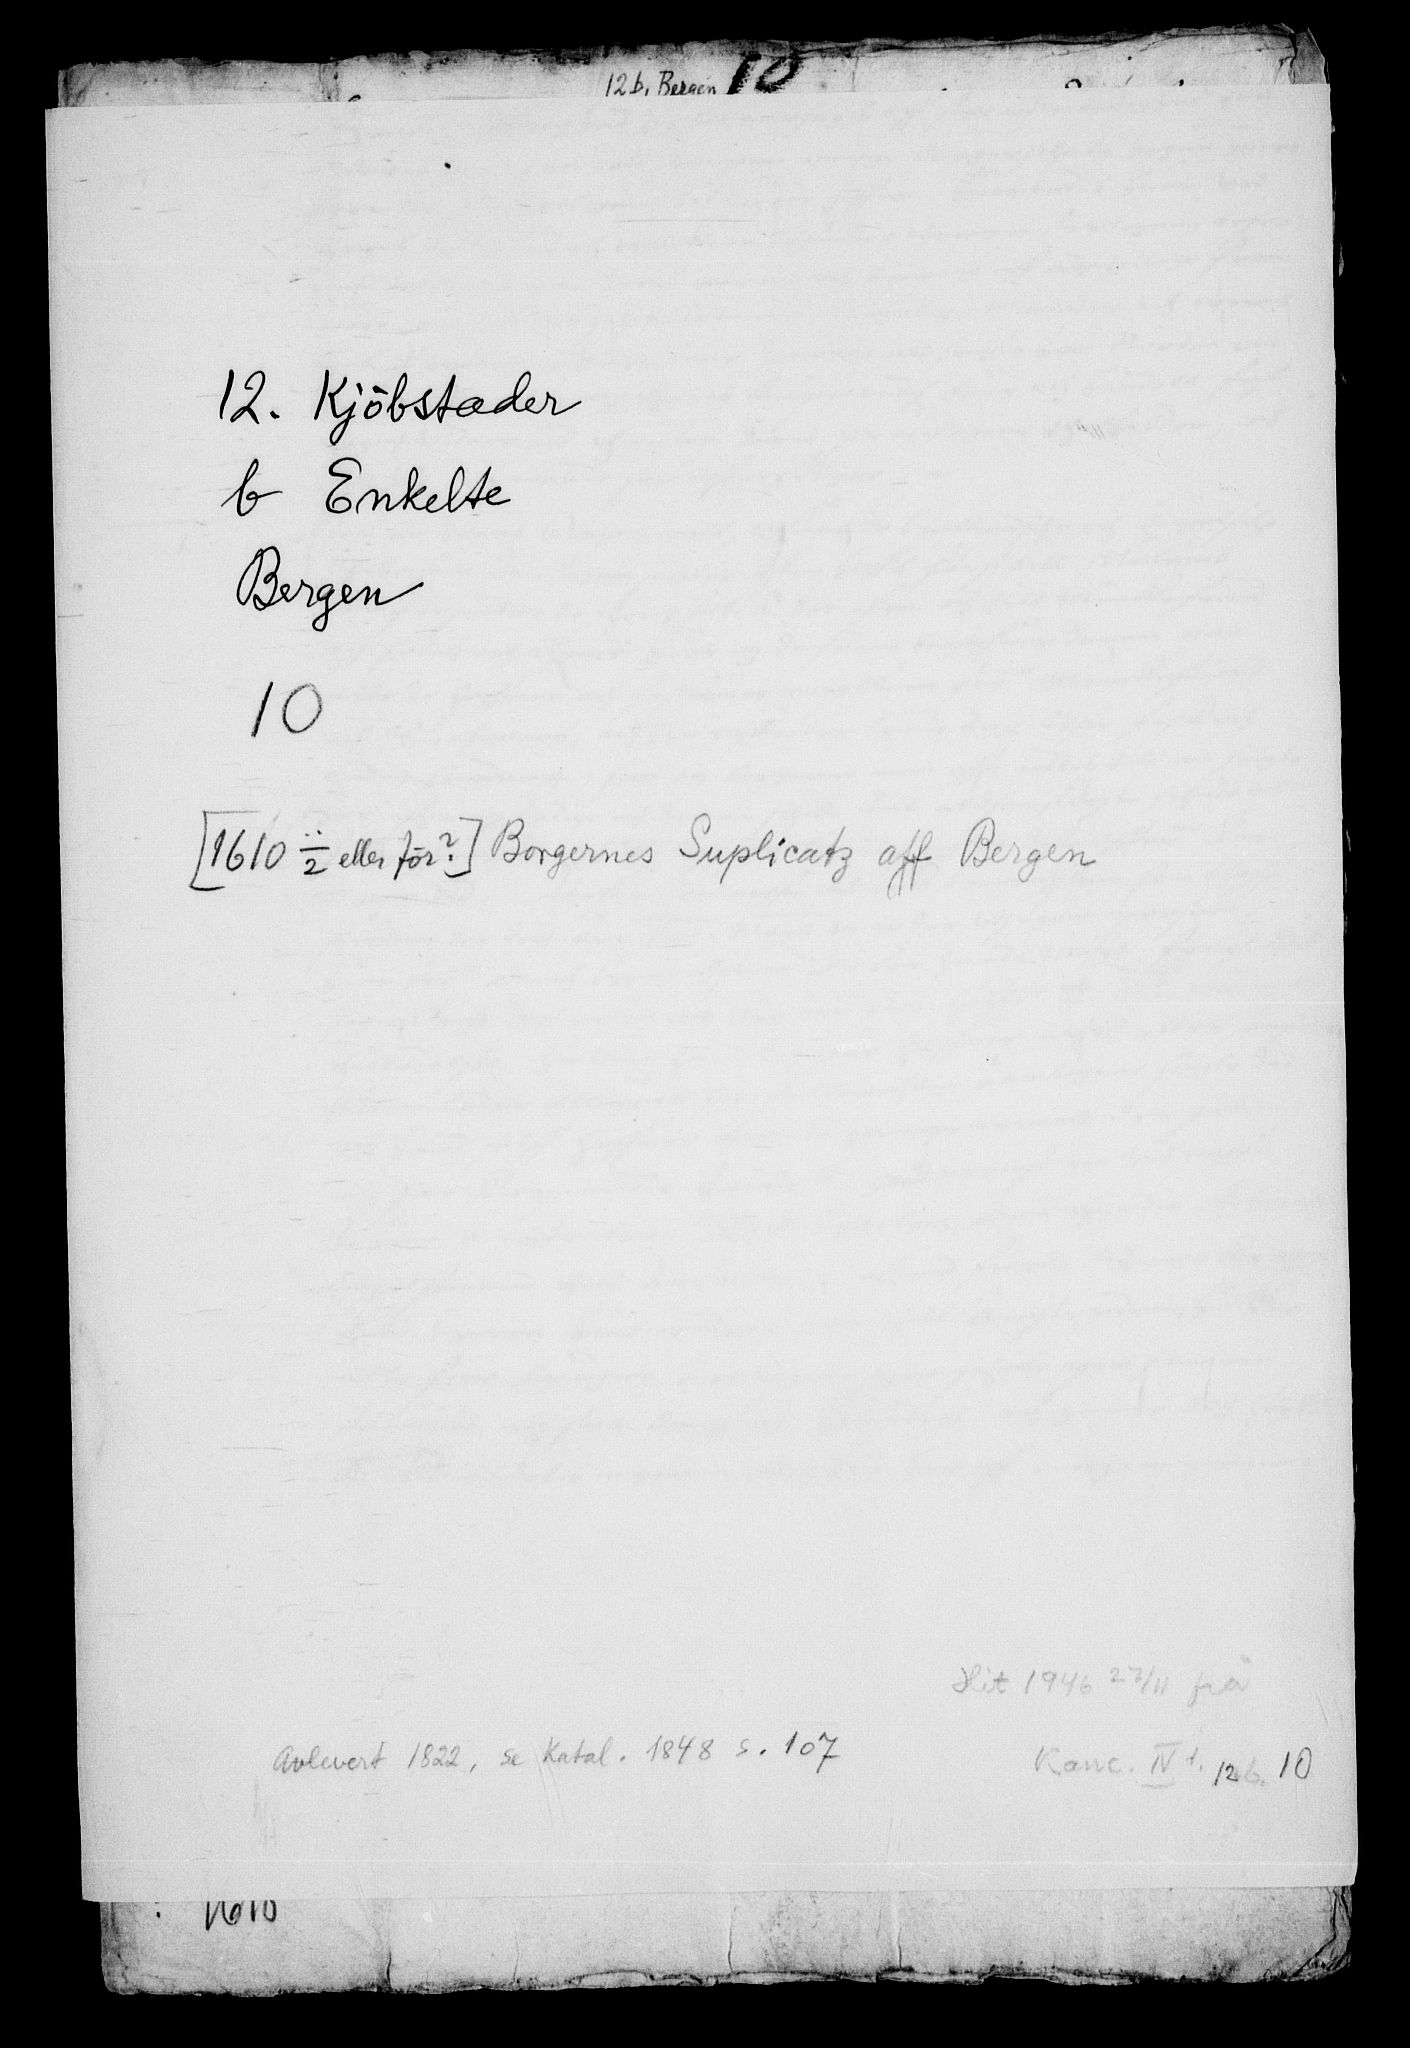 12 b. Bergen 10
12. Kjöbstæder
b Enkelte
Bergen
10
[1610 11/2 eller för?] Borgernes Suplicatz aff Bergen
Hit 1946 27/11 frå
Avlevert 1822, se Katal. 1848 s. 107
Kanc. IV 1. 12 b. 10
1610